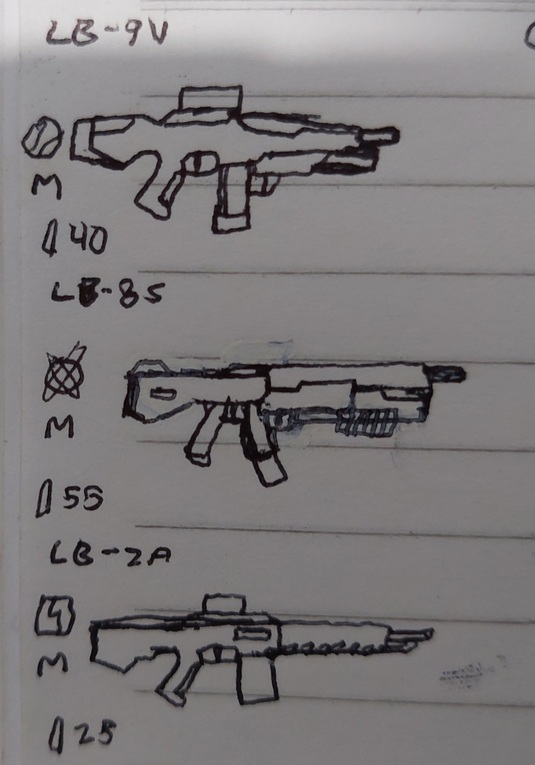 LB-9V
M
40
LB-85
M
55
LB-2A
M
25